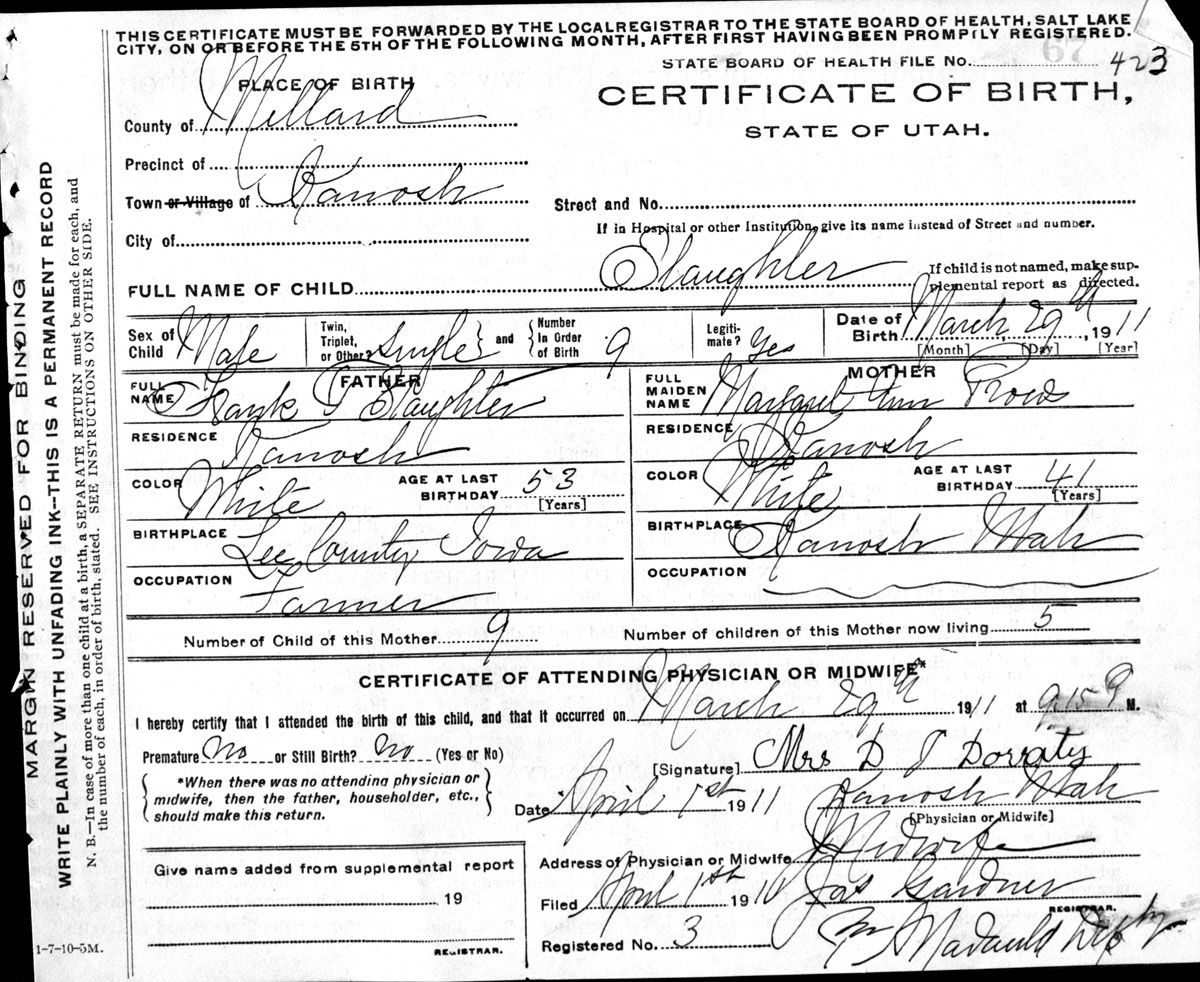 THIS CERTIFICATE MUST BE FORWARDED BY THE LOCAL REGISTRAR TO THE STATE BOARD OF HEALTH, SALT LAKE
CITY, ON OR BEFORE THE 5TH OF THE FOLLOWING MONTH, AFTER FIRST HAVING BEEN PROMPTLY REGISTERED.
STATE BOARD OF HEALTH FILE No. 67 423
PLACE OF BIRTH
CERTIFICATE OF BIRTH,
STATE OF UTAH.
County of Millard
Precinct of
Town or Village of Kanosh
Street and No.
City of
If in Hospital or other Institution, give its name instead of Street and number.
FULL NAME OF CHILD Slaughter
If child is not named, make sup-
plemental report as directed.
Sex of Child Male
Twin, Triplet, or Other? Single and Number In Order of Birth 9
Legiti-mate? Yes
Date of Birth March 29th, 1911
[Month] [Day] [Year]
FATHER
FULL NAME Frank Slaughter
RESIDENCE Kanosh
COLOR White AGE AT LAST BIRTHDAY 53
[Years]
BIRTHPLACE Lee County Iowa
OCCUPATION Farmer
MOTHER
FULL MAIDEN NAME Margaret Ann Prows
RESIDENCE Kanosh
COLOR White AGE AT LAST BIRTHDAY 41
[Years]
BIRTHPLACE Kanosh Utah
OCCUPATION
Number of Child of this Mother 9 Number of children of this Mother now living 5
CERTIFICATE OF ATTENDING PHYSICIAN OR MIDWIFE*
I hereby certify that I attended the birth of this child, and that it occurred on March 29th 1911 at 9:15 M.
Premature No or Still Birth? No (Yes or No)
*When there was no attending physician or
midwife, then the father, householder, etc.,
should make this return.
[Signature] Mrs D Dorraty
Date April 1st 1911 Kanosh Utah
[Physician or Midwife]
Midwife
Address of Physician or Midwife
Filed April 1st 1911 Jas Gardner
REGISTRAR.
Registered No. 3
Give name added from supplemental report
19
REGISTRAR.
1-7-10-5M.
MARGIN RESERVED FOR BINDING
WRITE PLAINLY WITH UNFADING INK—THIS IS A PERMANENT RECORD
N. B.—In case of more than one child at a birth, a SEPARATE RETURN must be made for each, and
the number of each, in order of birth, stated. SEE INSTRUCTIONS ON OTHER SIDE.